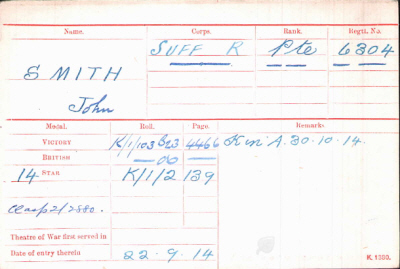 Name. Corps. Rank. Regtl. No.
SMITH SUFF R Pte 6304
John
Medal. Roll. Page. Remarks
VICTORY K/1/103 B23 4466 K in A. 30.10.14.
BRITISH — do —
14 STAR K/1/2 139
Clasp 2/2880.
Theatre of War first served in
Date of entry therein 22.9.14
K. 1380.